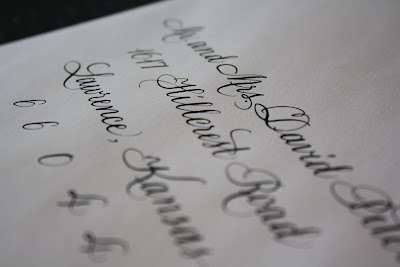 Mr. and Mrs. David
1617 Hillcrest Road
Lawrence, Kansas
66044